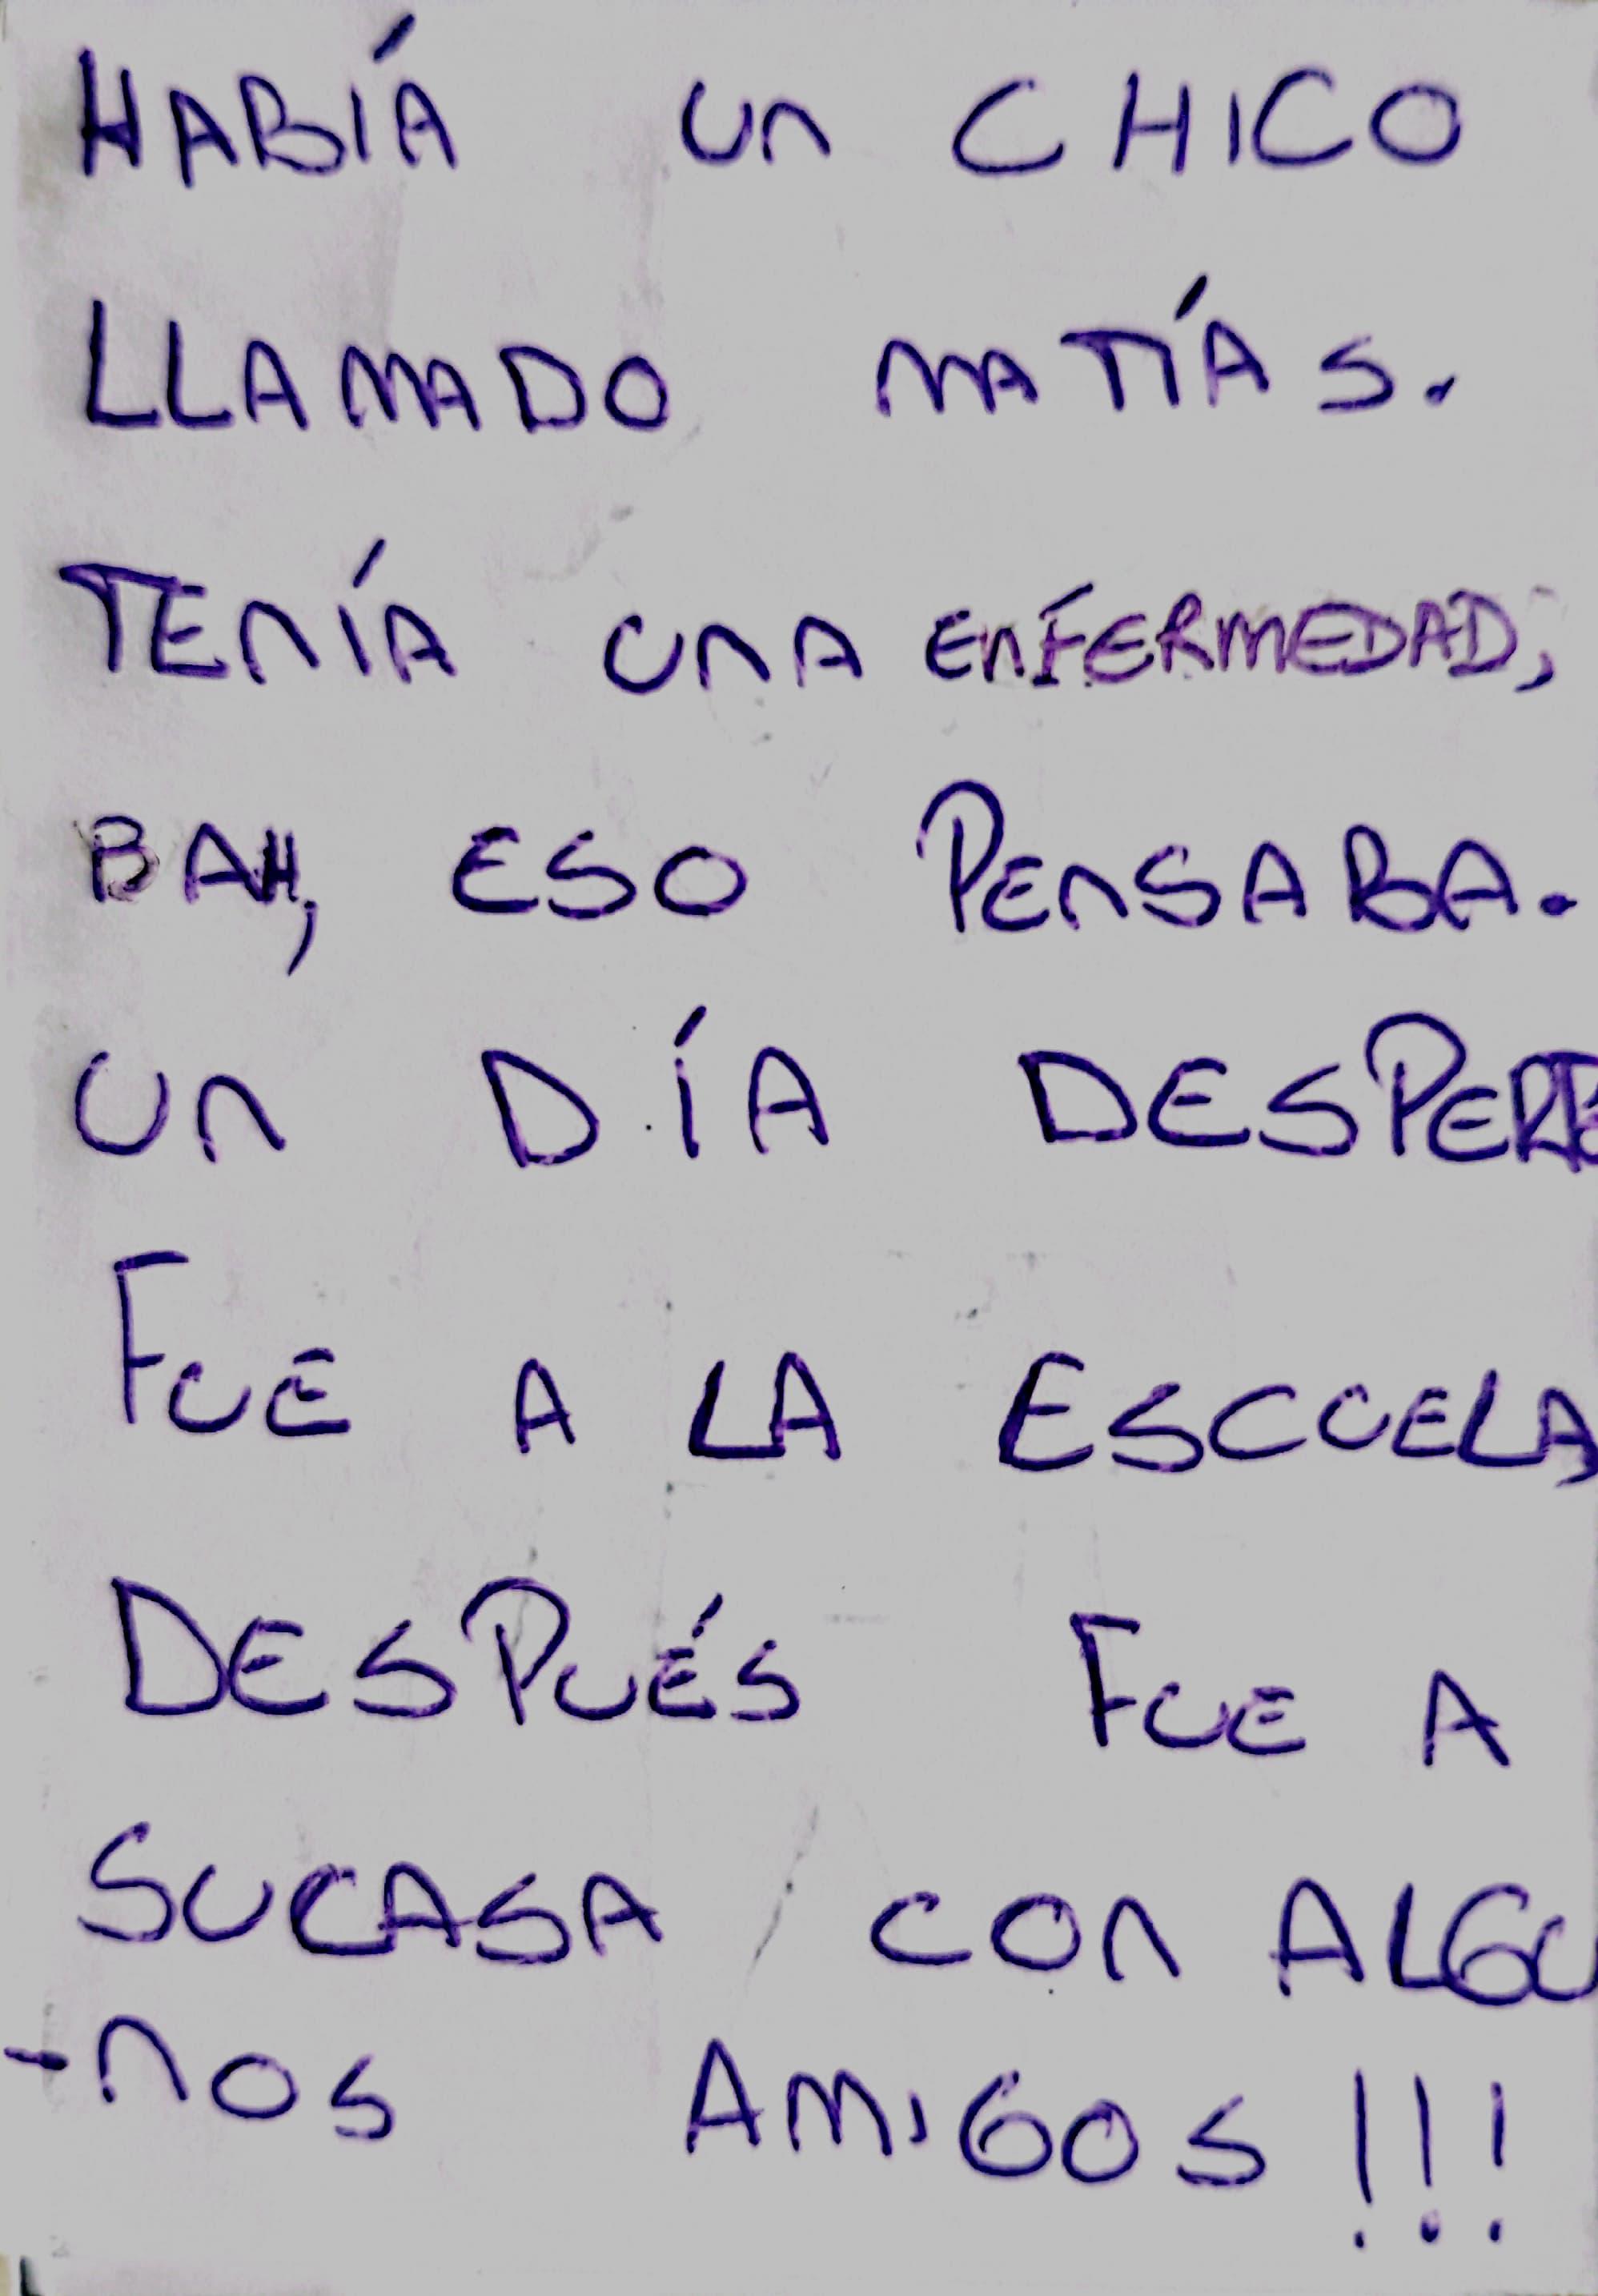 HABÍA UN CHICO
LLAMADO MATÍAS.
TENÍA UNA ENFERMEDAD,
BAH, ESO PENSABA.
UN DÍA
FUE A LA ESCUELA,
DESPUÉS FUE A
SUCASA CON ALGU
-NOS AMIGOS!!!